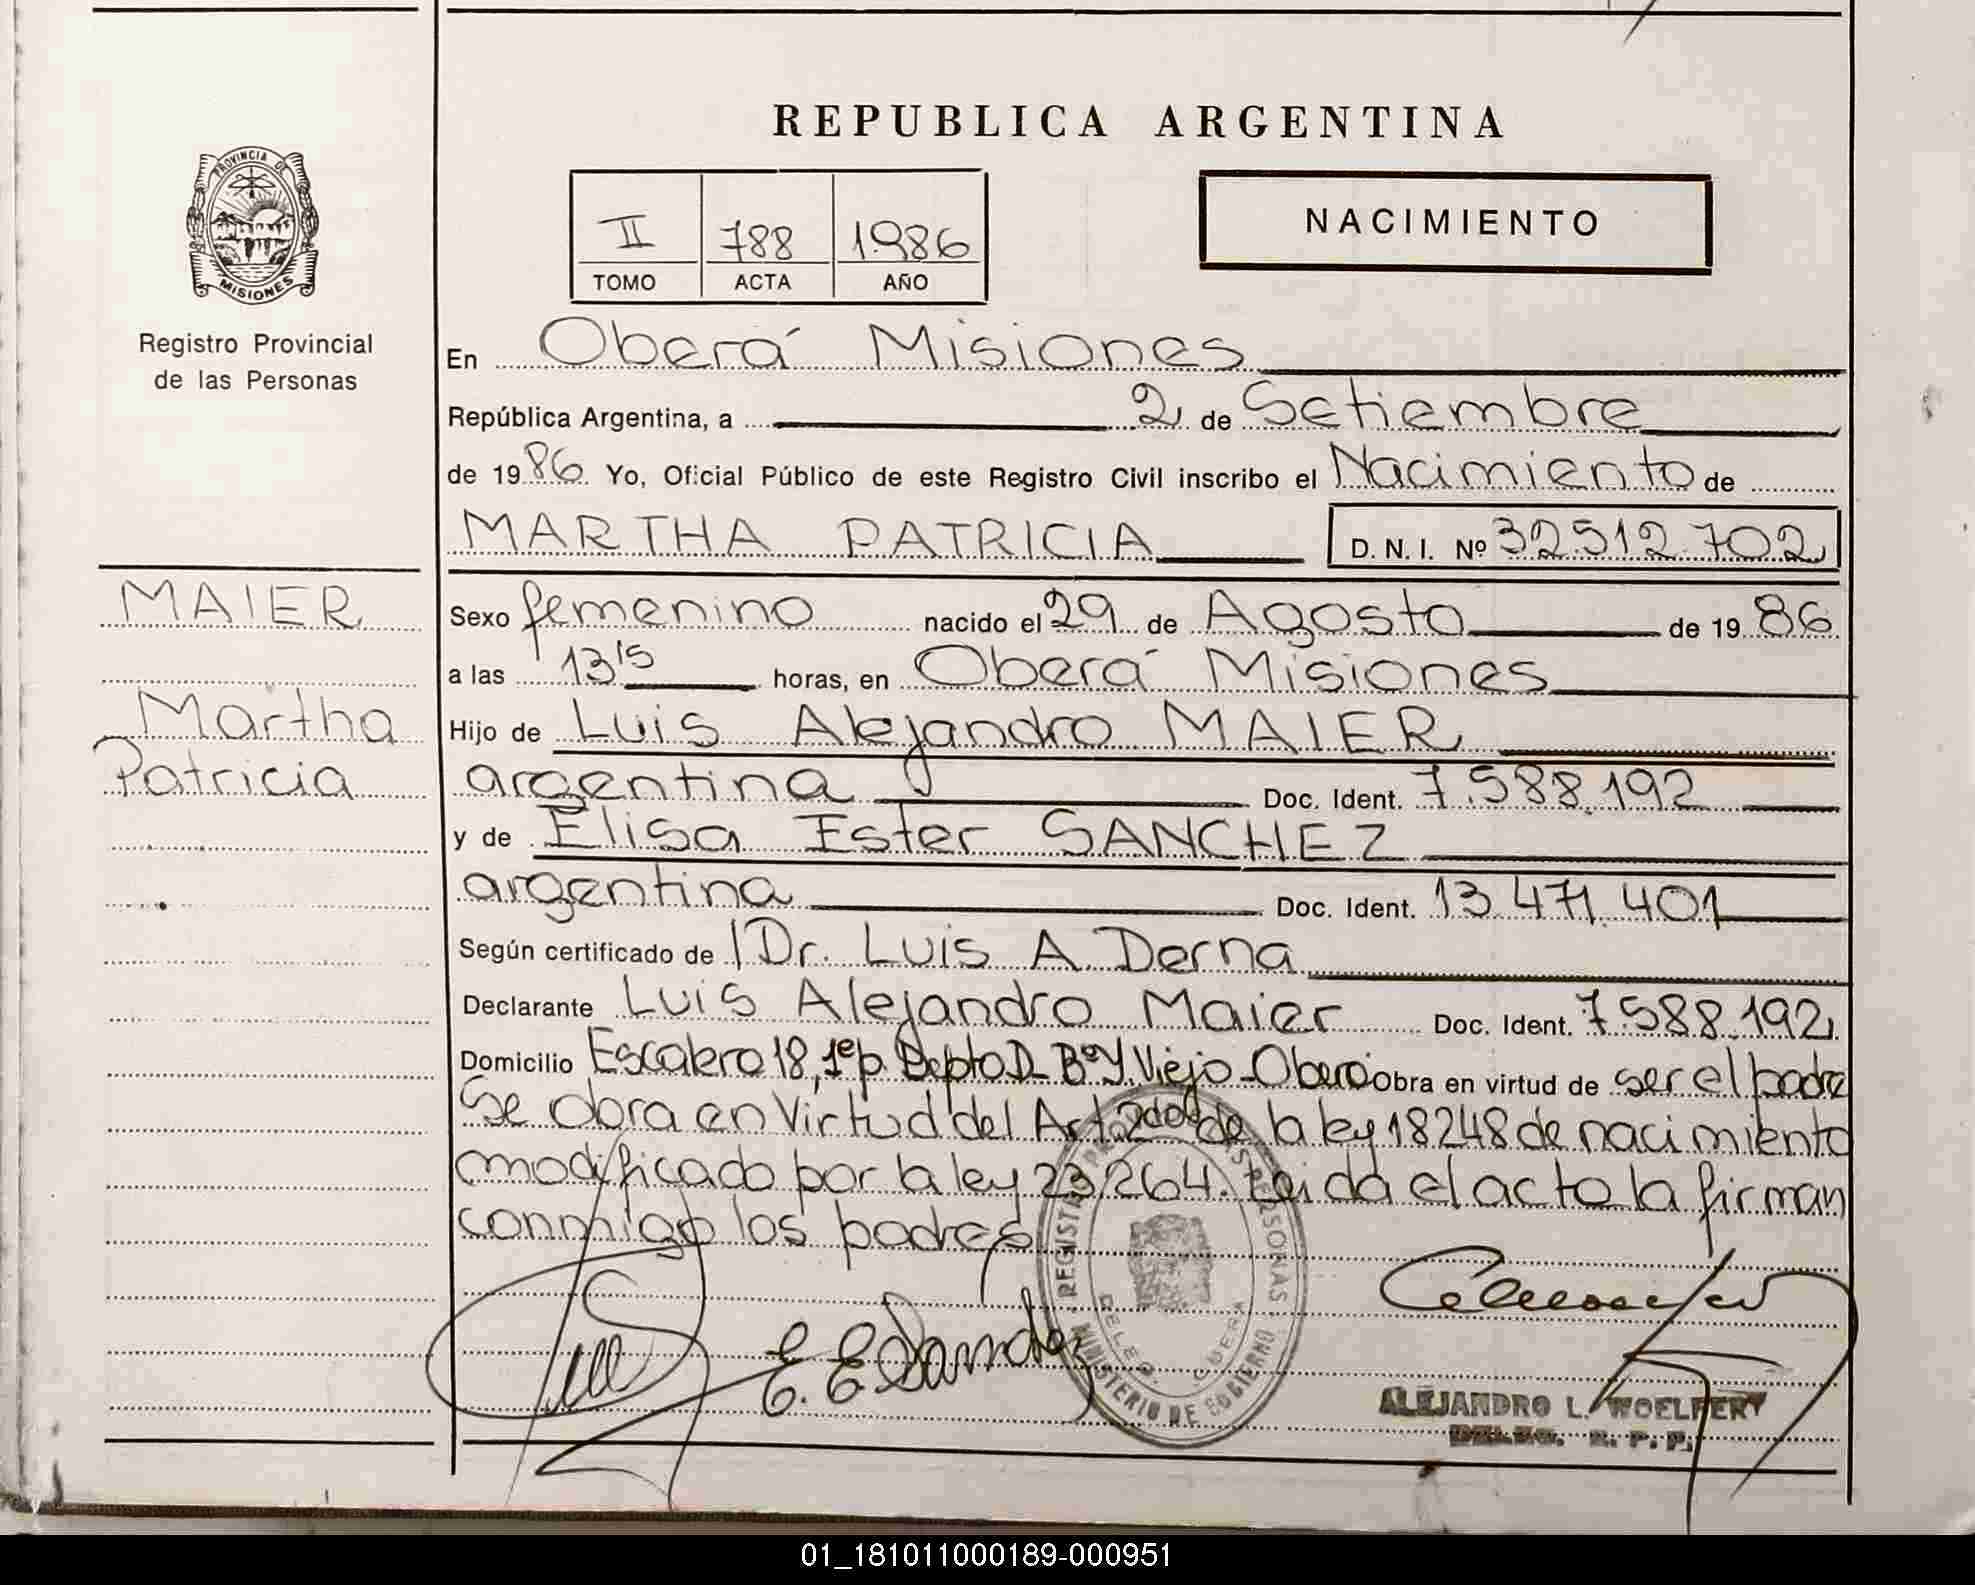 REPUBLICA ARGENTINA
PROVINCIA DE
MISIONES
Registro Provincial
de las Personas
II 788 1986
TOMO ACTA AÑO
NACIMIENTO
En Oberá Misiones
República Argentina, a 2 de Setiembre
de 1986 Yo, Oficial Público de este Registro Civil inscribo el Nacimiento de
MARTHA PATRICIA D. N. I. Nº 32.512.702
MAIER
Martha
Patricia
Sexo femenino nacido el 29 de Agosto de 1986
a las 13 15 horas, en Oberá Misiones
Hijo de Luis Alejandro MAIER
argentina Doc. Ident. 7.588.192
y de Elisa Ester SANCHEZ
argentina Doc. Ident. 13.471.401
Según certificado de Dr. Luis A. Derna
Declarante Luis Alejandro Maier Doc. Ident. 7.588.192
Domicilio Escalero 18, 1ºp. Depto D- BºY. Viejo-Oberá Obra en virtud de ser el padre
Se obra en Virtud del Art. 2do de la ley 18248 de nacimiento
modificado por la ley 23.264. Leida el acto la firman
conmigo los padres
E. E Sanchez
MINISTERIO DE GOBIERNO
ALEJANDRO L. WOELFERT
DELEG. R. P. P.
01_181011000189-000951